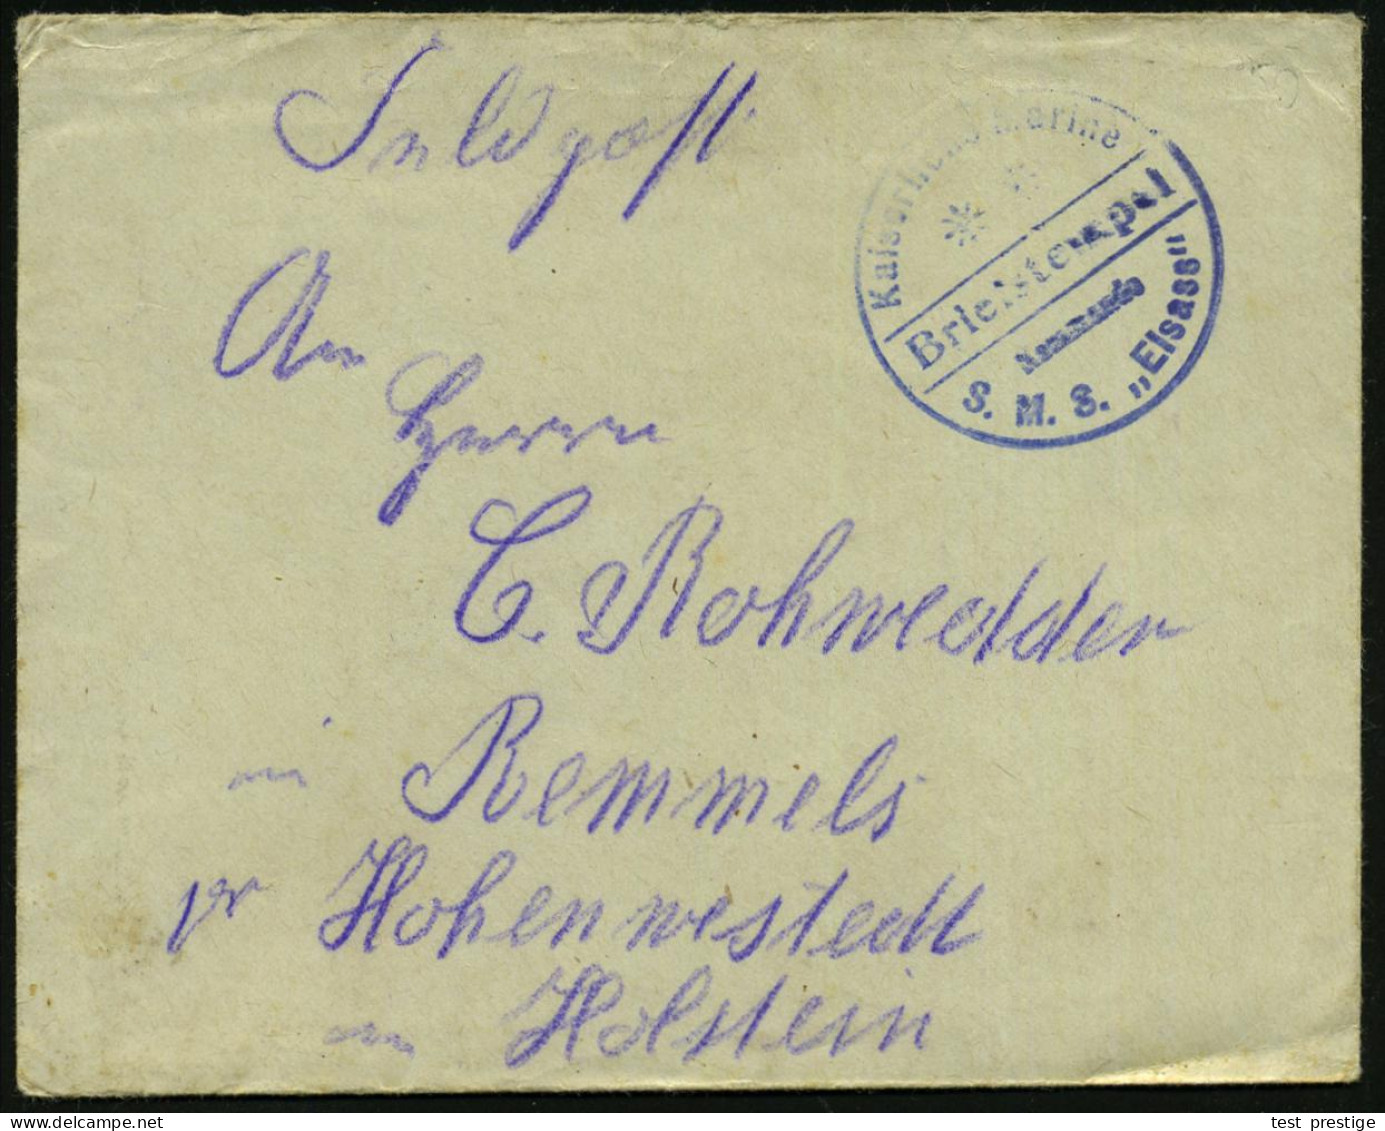 Feldpost
Kaiserliche Marine
Briefstempel
Kommando
S. M. S. „Elsass"
An
Herrn
C. Rohwedder
in Remmels
pr Hohenwestedt
in Holstein
test prestige